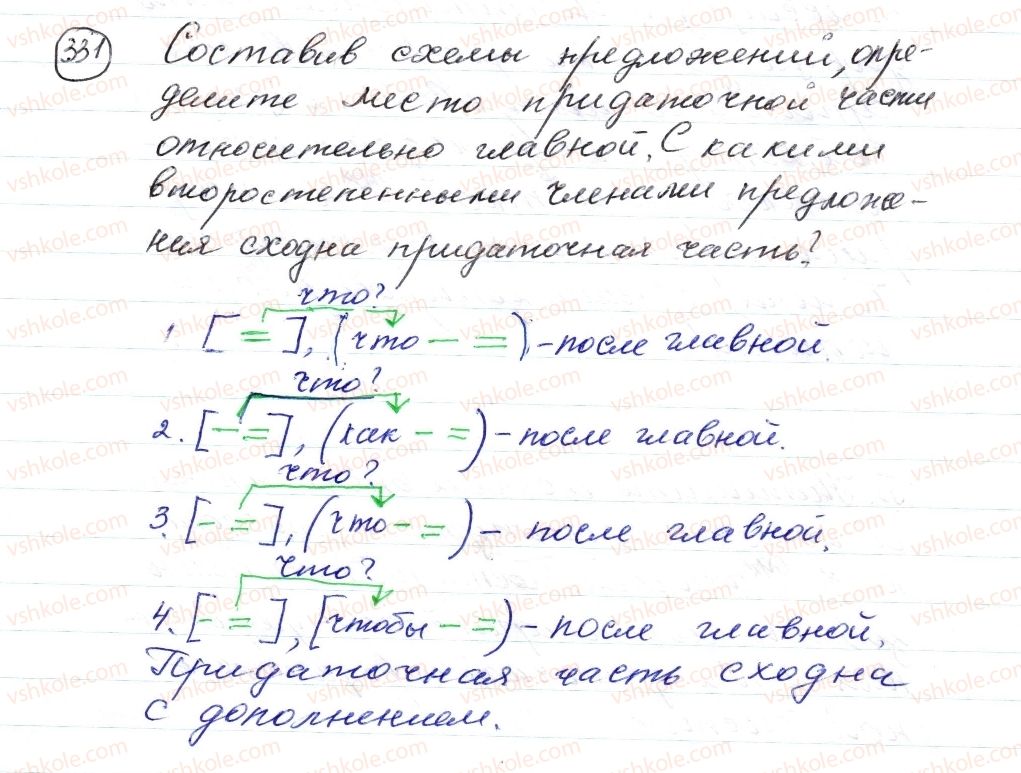 331 Составив схемы предложений, опре-
делите место придаточной части
относительно главной. С какими
второстепенными членами предложе-
ния сходна придаточная часть?
что?
1 [ = ], (что – = ) – после главной.
что?
2. [ – = ], (как – = ) – после главной.
что?
3. [ – = ], (что – = ) – после главной.
что?
4. [ – = ], [чтобы – = ) – после главной.
Придаточная часть сходна
с дополнением.